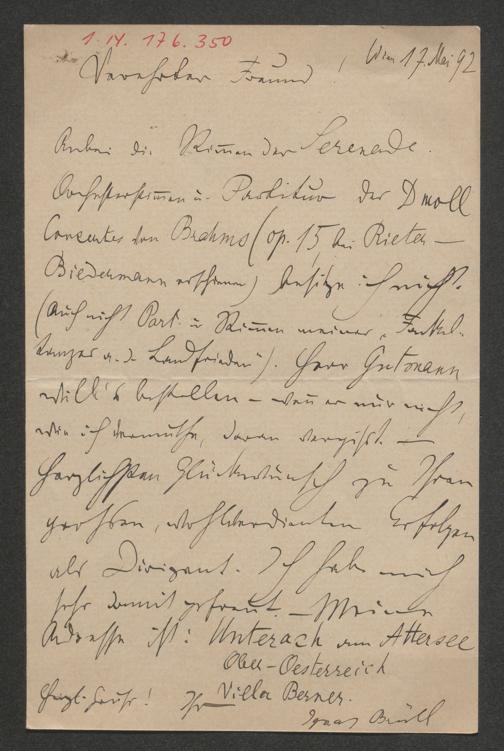 1.IY. 176.350
Wien 17. Mai 92
Verehrter Freund!
Anbei die Stimmen der Serenade.
Orchesterstimmen u. Partitur des D moll
Concertes von Brahms (op. 15, bei Rieter-
Biedermann erschienen) besitze ich nicht.
(Auch nicht Part. u Stimmen meines „Fackel-
tanzes a. d. Landfrieden"). Herr Gutmann
will's bestellen – wenn er nur nicht,
wie ich vermuthe, daran vergisst. –
Herzlichsten Glückwunsch zu Ihren
grossen, wohlverdienten Erfolgen
als Dirigent. Ich habe mich
sehr damit gefreut. – Meine
Adresse ist: Unterach am Attersee
Ober-Oesterreich
Villa Berner.
Herzl. Gruss! Ihr
Ignaz Brüll